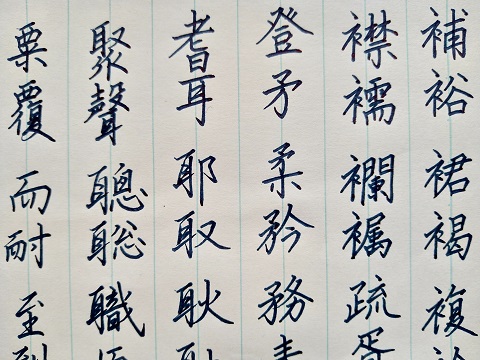 補裕裙褐複
襟襦襴疏
登矛柔矜務
耆耳耶取耿
聚聲聰聡職
粟覆而耐至